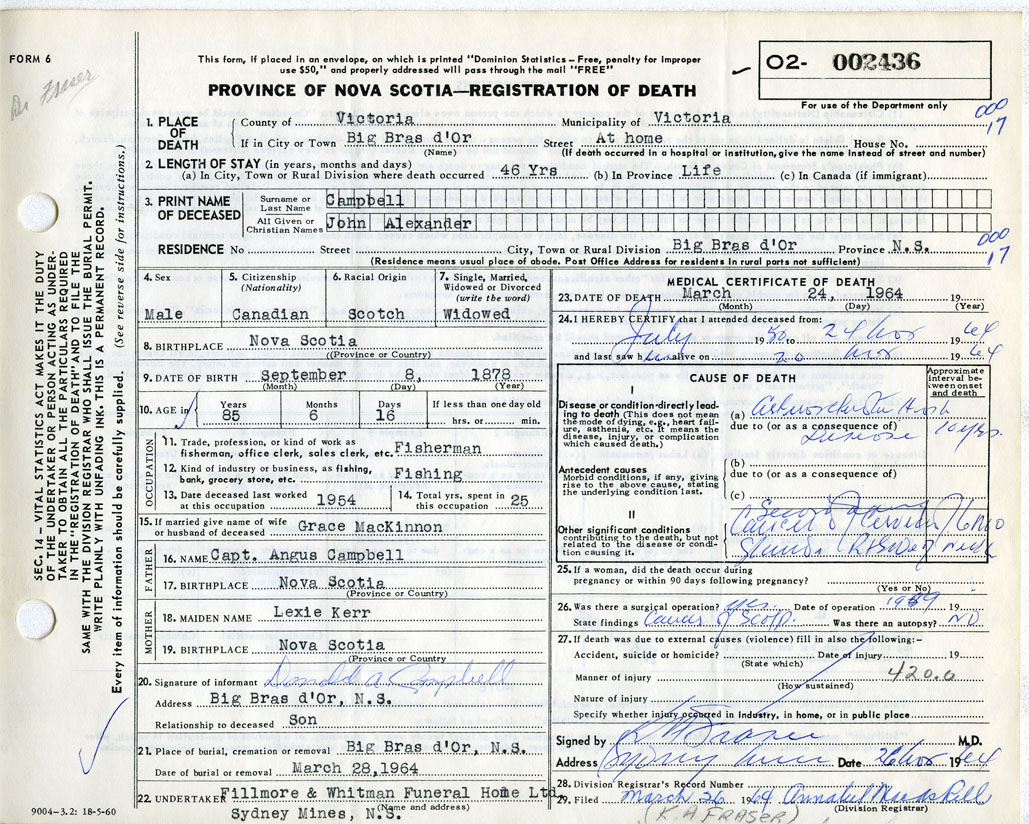 FORM 6
Dr Fraser
This form, if placed in an envelope, on which is printed "Dominion Statistics – Free, penalty for improper
use $50," and properly addressed will pass through the mail "FREE"
O2- 002436
For use of the Department only
PROVINCE OF NOVA SCOTIA—REGISTRATION OF DEATH
000
17
1. PLACE OF DEATH County of Victoria Municipality of Victoria
If in City or Town Big Bras d'Or Street At home House No.
(Name) (If death occurred in a hospital or institution, give the name instead of street and number)
2. LENGTH OF STAY (in years, months and days)
(a) In City, Town or Rural Division where death occurred 46 Yrs (b) In Province Life (c) In Canada (if immigrant)
3. PRINT NAME OF DECEASED Surname or Last Name Campbell
All Given or Christian Names John Alexander
000
17
RESIDENCE No Street City, Town or Rural Division Big Bras d'Or Province N.S.
(Residence means usual place of abode. Post Office Address for residents in rural parts not sufficient)
SEC. 14 – VITAL STATISTICS ACT MAKES IT THE DUTY
OF THE UNDERTAKER OR PERSON ACTING AS UNDER-
TAKER TO OBTAIN ALL THE PARTICULARS REQUIRED
IN THE "REGISTRATION OF DEATH" AND TO FILE THE
SAME WITH THE DIVISION REGISTRAR WHO SHALL ISSUE THE BURIAL PERMIT.
WRITE PLAINLY WITH UNFADING INK. THIS IS A PERMANENT RECORD.
Every item of information should be carefully supplied. (See reverse side for instructions.)
4. Sex
Male
5. Citizenship
(Nationality)
Canadian
6. Racial Origin
Scotch
7. Single, Married,
Widowed or Divorced
(write the word)
Widowed
8. BIRTHPLACE Nova Scotia
(Province or Country)
9. DATE OF BIRTH September 8, 1878
(Month) (Day) (Year)
10. AGE in Years Months Days If less than one day old
85 6 16 hrs. or min.
OCCUPATION
11. Trade, profession, or kind of work as
fisherman, office clerk, sales clerk, etc. Fisherman
12. Kind of industry or business, as fishing,
bank, grocery store, etc. Fishing
13. Date deceased last worked
at this occupation 1954
14. Total yrs. spent in
this occupation 25
15. If married give name of wife
or husband of deceased Grace MacKinnon
FATHER
16. NAME Capt. Angus Campbell
17. BIRTHPLACE Nova Scotia
(Province or Country)
MOTHER
18. MAIDEN NAME Lexie Kerr
19. BIRTHPLACE Nova Scotia
(Province or Country)
20. Signature of informant Donald A Campbell
Address Big Bras d'Or, N.S.
Relationship to deceased Son
21. Place of burial, cremation or removal Big Bras d'Or, N.S.
Date of burial or removal March 28,1964
22. UNDERTAKER Fillmore & Whitman Funeral Home Ltd.
(Name and address)
Sydney Mines, N.S.
9004–3.2: 18-5-60
MEDICAL CERTIFICATE OF DEATH
23. DATE OF DEATH March 24, 1964 19
(Month) (Day) (Year)
24. I HEREBY CERTIFY that I attended deceased from:
July 19 50 to 24 Mar 64
and last saw h im alive on 20 Mar 19 64
CAUSE OF DEATH
Approximate
interval be-
tween onset
and death
I
Disease or condition directly lead-
ing to death (This does not mean
the mode of dying, e.g., heart fail-
ure, asthenia, etc. It means the
disease, injury, or complication
which caused death.)
(a)
due to (or as a consequence of)
Disease 10 yrs.
Antecedent causes
Morbid conditions, if any, giving
rise to the above cause, stating
the underlying condition last.
(b)
due to (or as a consequence of)
(c)
II
Other significant conditions
contributing to the death, but not
related to the disease or condi-
tion causing it.
Secondary
Cancer of Cervical 6 mo
Glands Rt side of neck
25. If a woman, did the death occur during
pregnancy or within 90 days following pregnancy?
(Yes or No)
26. Was there a surgical operation? yes Date of operation 1959 19
State findings Cancer of Scalp. Was there an autopsy? NO
27. If death was due to external causes (violence) fill in also the following:–
Accident, suicide or homicide? Date of injury 19
(State which)
Manner of injury 420.0
(How sustained)
Nature of injury
Specify whether injury occurred in industry, in home, or in public place
Signed by K A Fraser M.D.
Address Sydney Mines Date 26 Mar 19 64
28. Division Registrar's Record Number
29. Filed March 26 19 64
(Division Registrar)
(K. A FRASER)